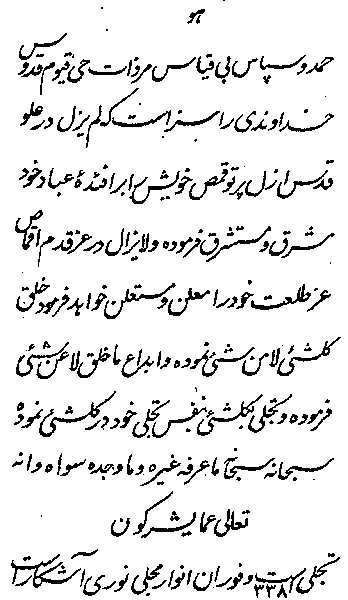 هو
حمد و سپاس بی قیاس مر ذات حی قیوم قدوس
خداوندی را سزاست که لم یزل در علو
قدس ازل پرتو قمص خویش را بر افئدهٔ عباد خود
مشرق و مستشرق فرموده و لا یزال در عز قدم اقماص
عز طلعت خود را معلن و مستعلن خواهد فرمود خلق
کلشئی لا من شئی نموده و ابداع ما خلق لا عن شئی
فرموده و تجلی بکلشئی بنفس تجلی خود در کلشئی نموده
سبحانه سبحانه ما عرفه غیره و ما وجده سواه و انه
تعالی عما یشرکون
تجلی است و فوران انوار مجلی نوری آشکار است
۳۳۸۲